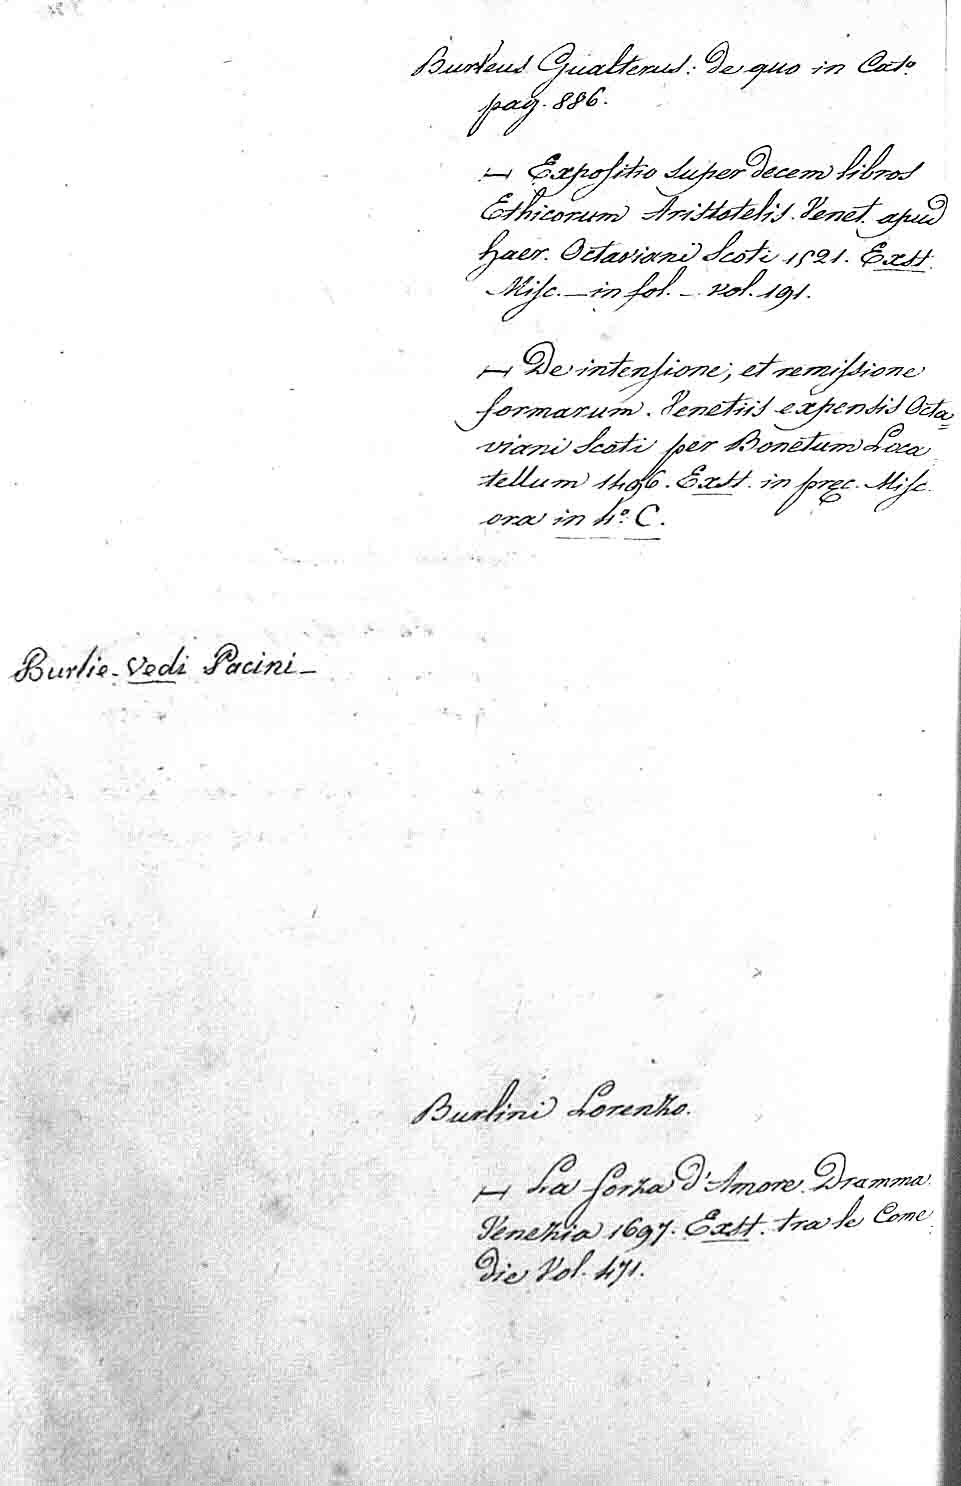 Burleus Gualterus: de quo in Cato.
pag. 886.
— Expositio super decem libros
Ethicorum Aristotelis. Venet. apud
haer. Octaviani Scoti 1521. Exst.
Misc. — in fol. — vol. 191.
— De intensione, et remissione
formarum. Venetiis expensis Octa=
viani Scoti per Bonetum Loca
tellum 1496. Exst. in pręc. Misc.
ora in 4º. C.
Burlie - Vedi Pacini —
Burlini Lorenzo.
— La forza d'Amore. Dramma.
Venezia 1697. Exst. tra le Come
die Vol. 471.